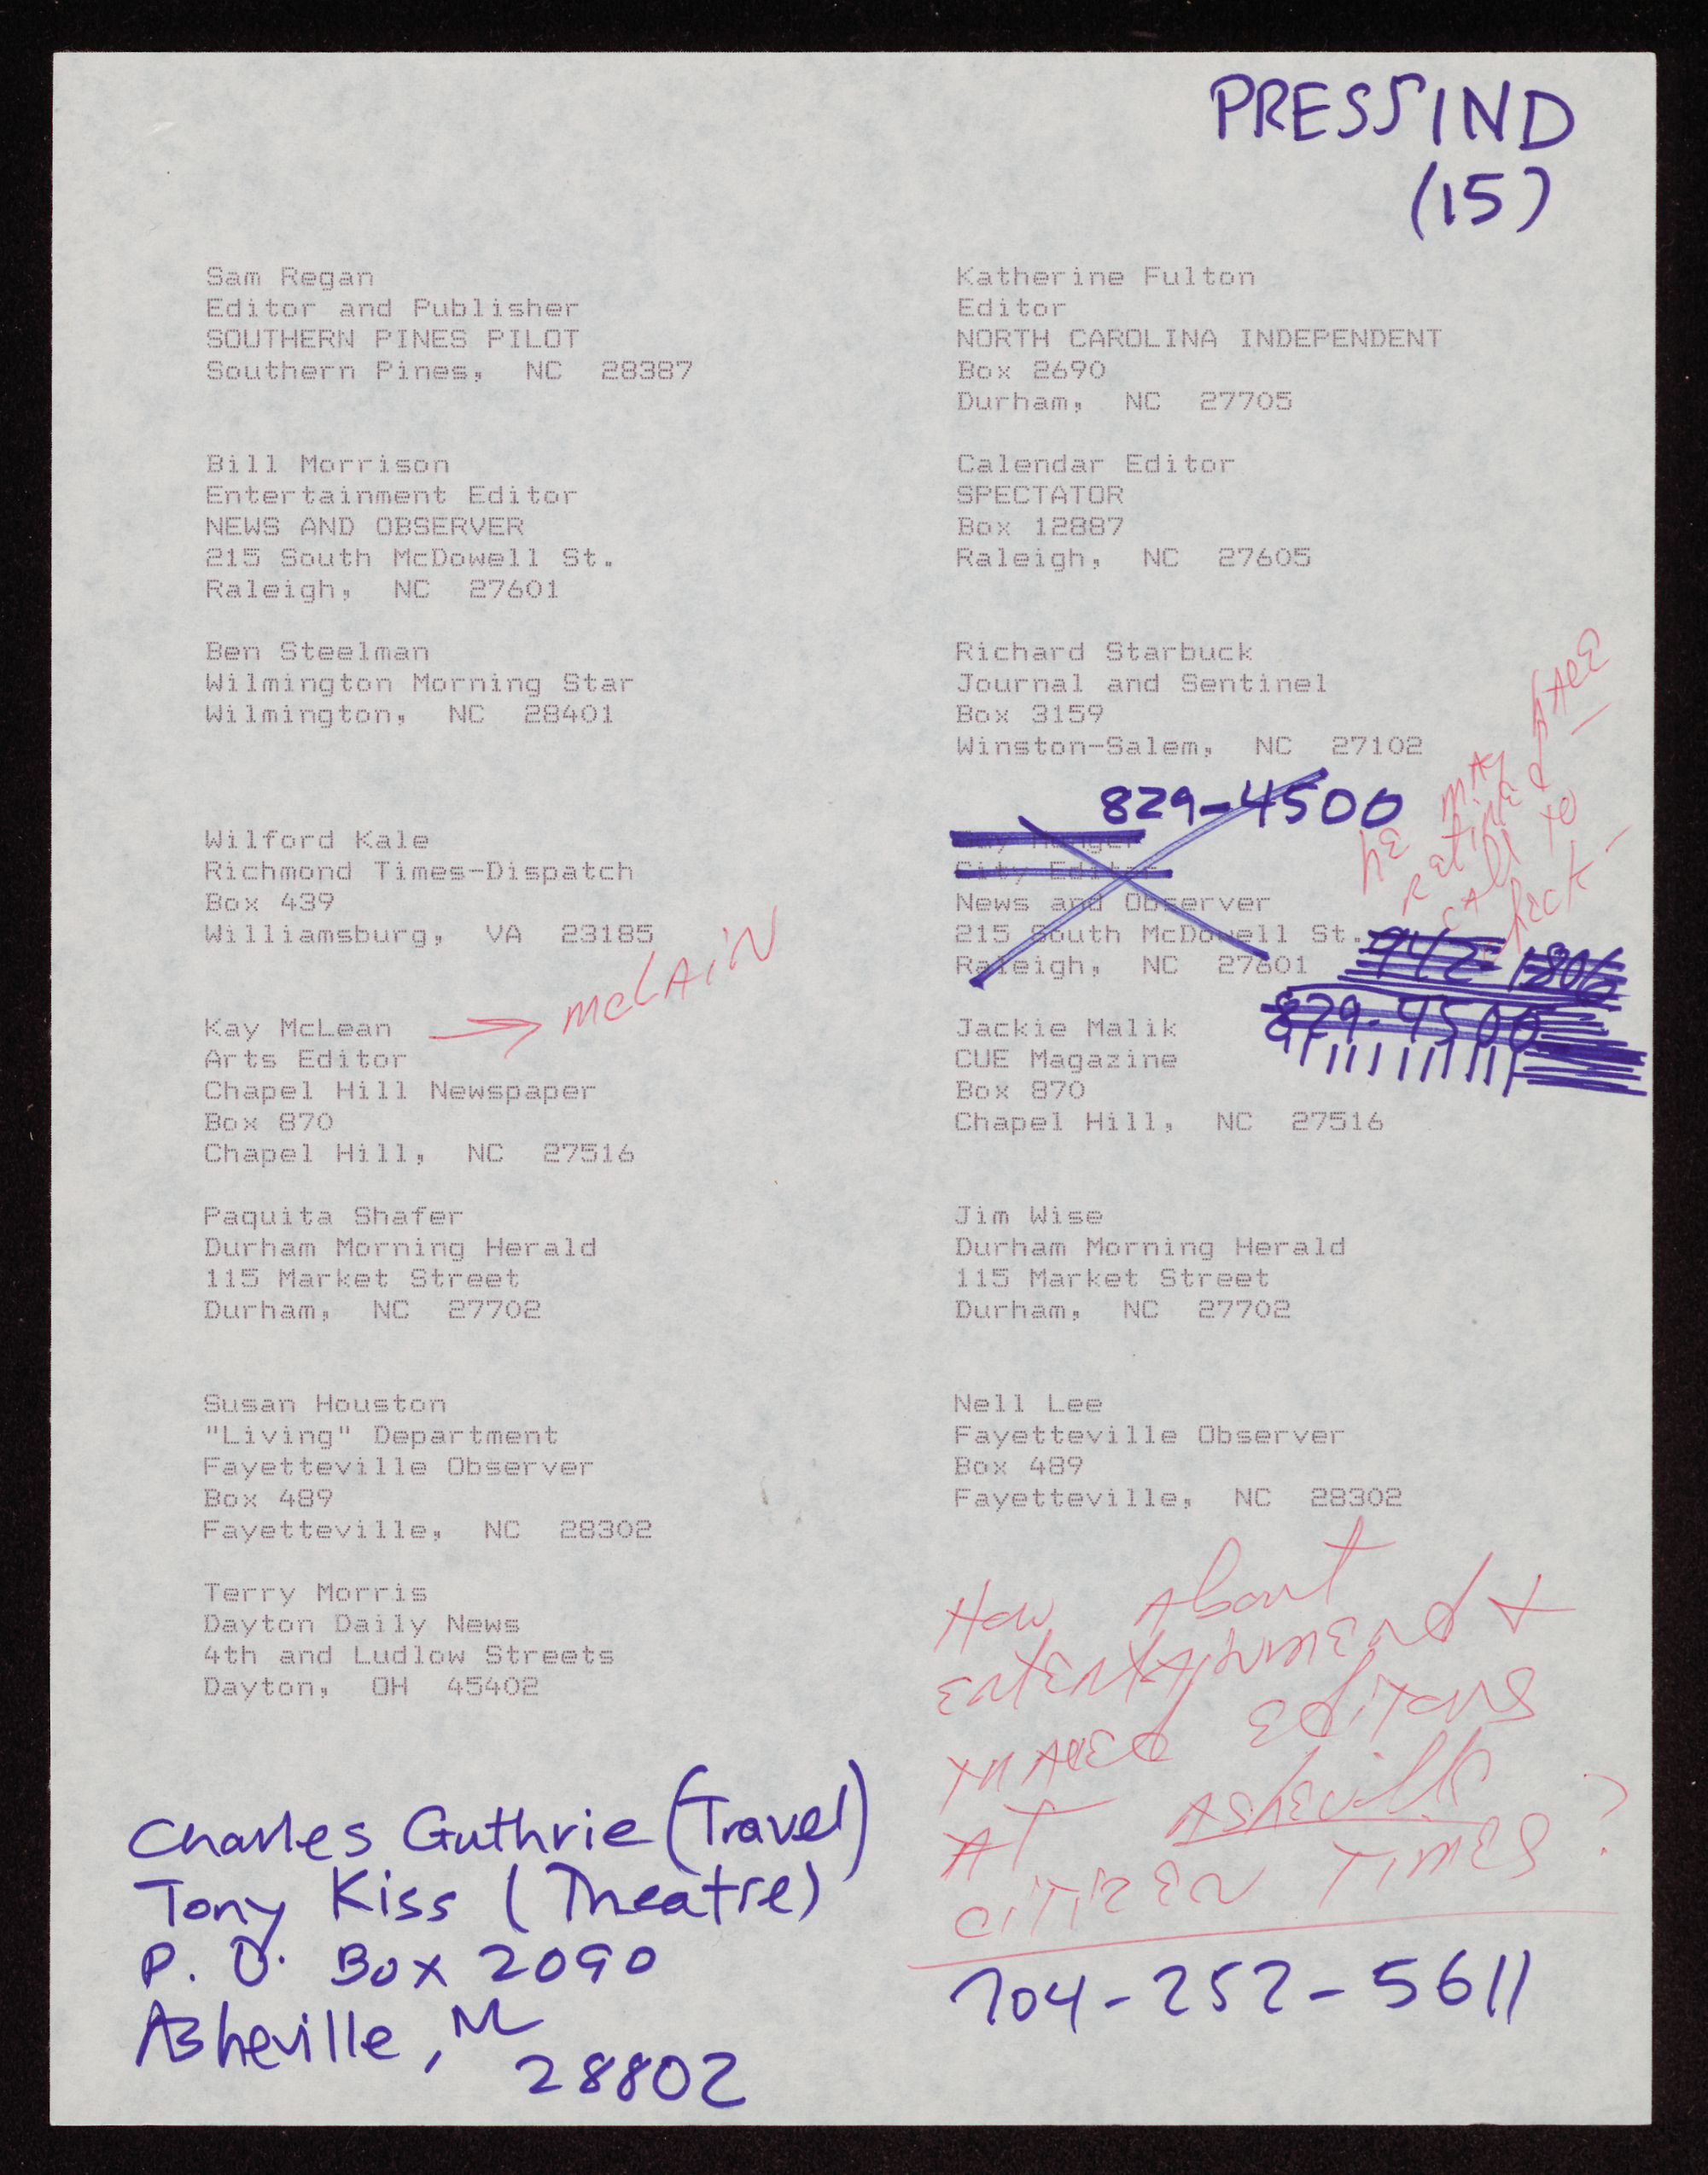 PRESSIND
(15)
Sam Regan
Editor and Publisher
SOUTHERN PINES PILOT
Southern Pines, NC 28387
Katherine Fulton
Editor
NORTH CAROLINA INDEPENDENT
Box 2690
Durham, NC 27705
Bill Morrison
Entertainment Editor
NEWS AND OBSERVER
215 South McDowell St.
Raleigh, NC 27601
Calendar Editor
SPECTATOR
Box 12887
Raleigh, NC 27605
Ben Steelman
Wilmington Morning Star
Wilmington, NC 28401
Richard Starbuck
Journal and Sentinel
Box 3159
Winston-Salem, NC 27102
Wilford Kale
Richmond Times-Dispatch
Box 439
Williamsburg, VA 23185
829-4500
City Editor
News and Observer
215 South McDowell St.
Raleigh, NC 27601
he may
retired
call to
check -
942-1806
829-4500
Kay McLean
McLAIN
Arts Editor
Chapel Hill Newspaper
Box 870
Chapel Hill, NC 27516
Jackie Malik
CUE Magazine
Box 870
Chapel Hill, NC 27516
Paquita Shafer
Durham Morning Herald
115 Market Street
Durham, NC 27702
Jim Wise
Durham Morning Herald
115 Market Street
Durham, NC 27702
Susan Houston
"Living" Department
Fayetteville Observer
Box 489
Fayetteville, NC 28302
Nell Lee
Fayetteville Observer
Box 489
Fayetteville, NC 28302
Terry Morris
Dayton Daily News
4th and Ludlow Streets
Dayton, OH 45402
How About
ENTERTAINMENT &
TRAVEL EDITORS
AT Asheville
CITIZEN TIMES?
704-252-5611
Charles Guthrie (Travel)
Tony Kiss (Theatre)
P. O. Box 2090
Asheville, NC
28802